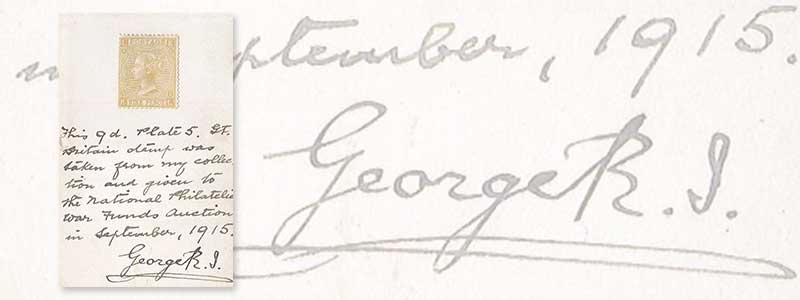 POSTAGE
NINE PENCE
This 9d. Plate 5. Gt.
Britain stamp was
taken from my collec-
tion and given to
the National Philatelic
War Funds Auction
in September, 1915.
George R. I.
September, 1915.
George R. I.